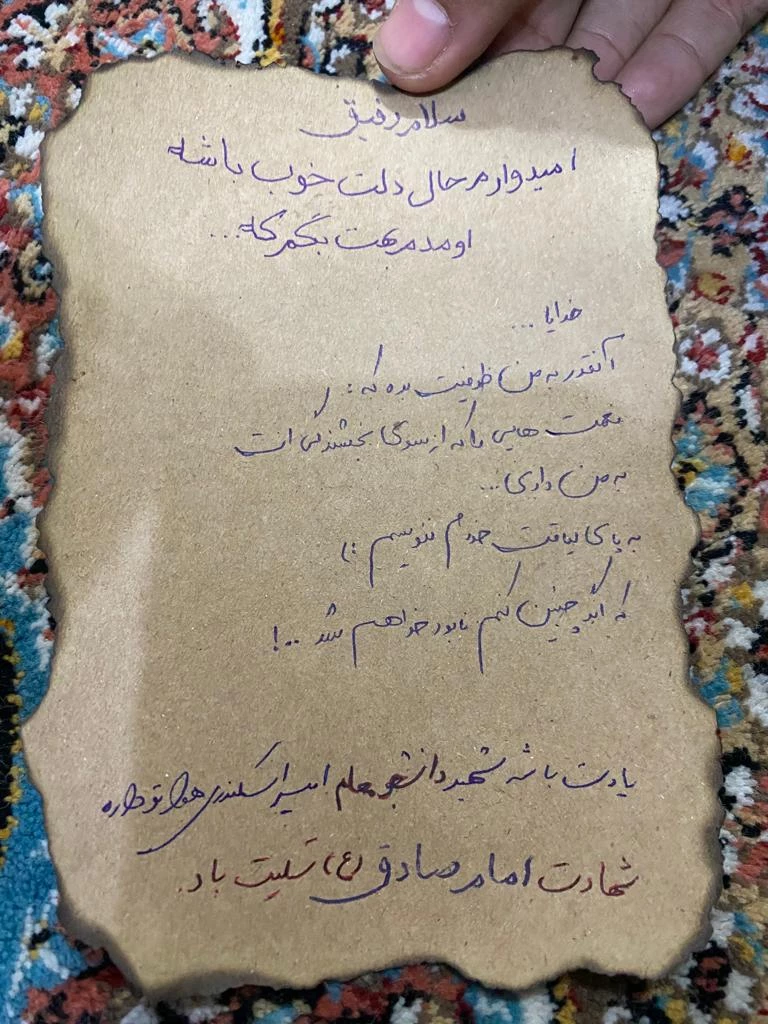 سلام رفیق
امیدوارم حال دلت خوب باشه
اومدم بهت بگم که...
خدایا...
آنقدر به من ظرفیت بده که:
نعمت هایی را که از سوی بخشندگی ات
به من دادی...
به پای لیاقت خودم ننویسم :)
که اگر چنین کنم نابود خواهم شد ..!
یادت باشه شهید دانشجو معلم امیر اسکندری هواتو داره
شهادت امام صادق (ع) تسلیت باد.